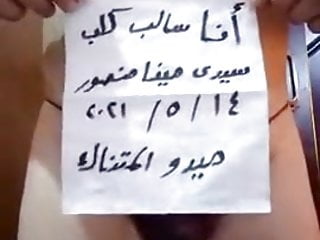 أنا سالب كلب
سيدى هيفا منصور
١٤ / ٥ / ٢٠٢١
ميدو المتناك